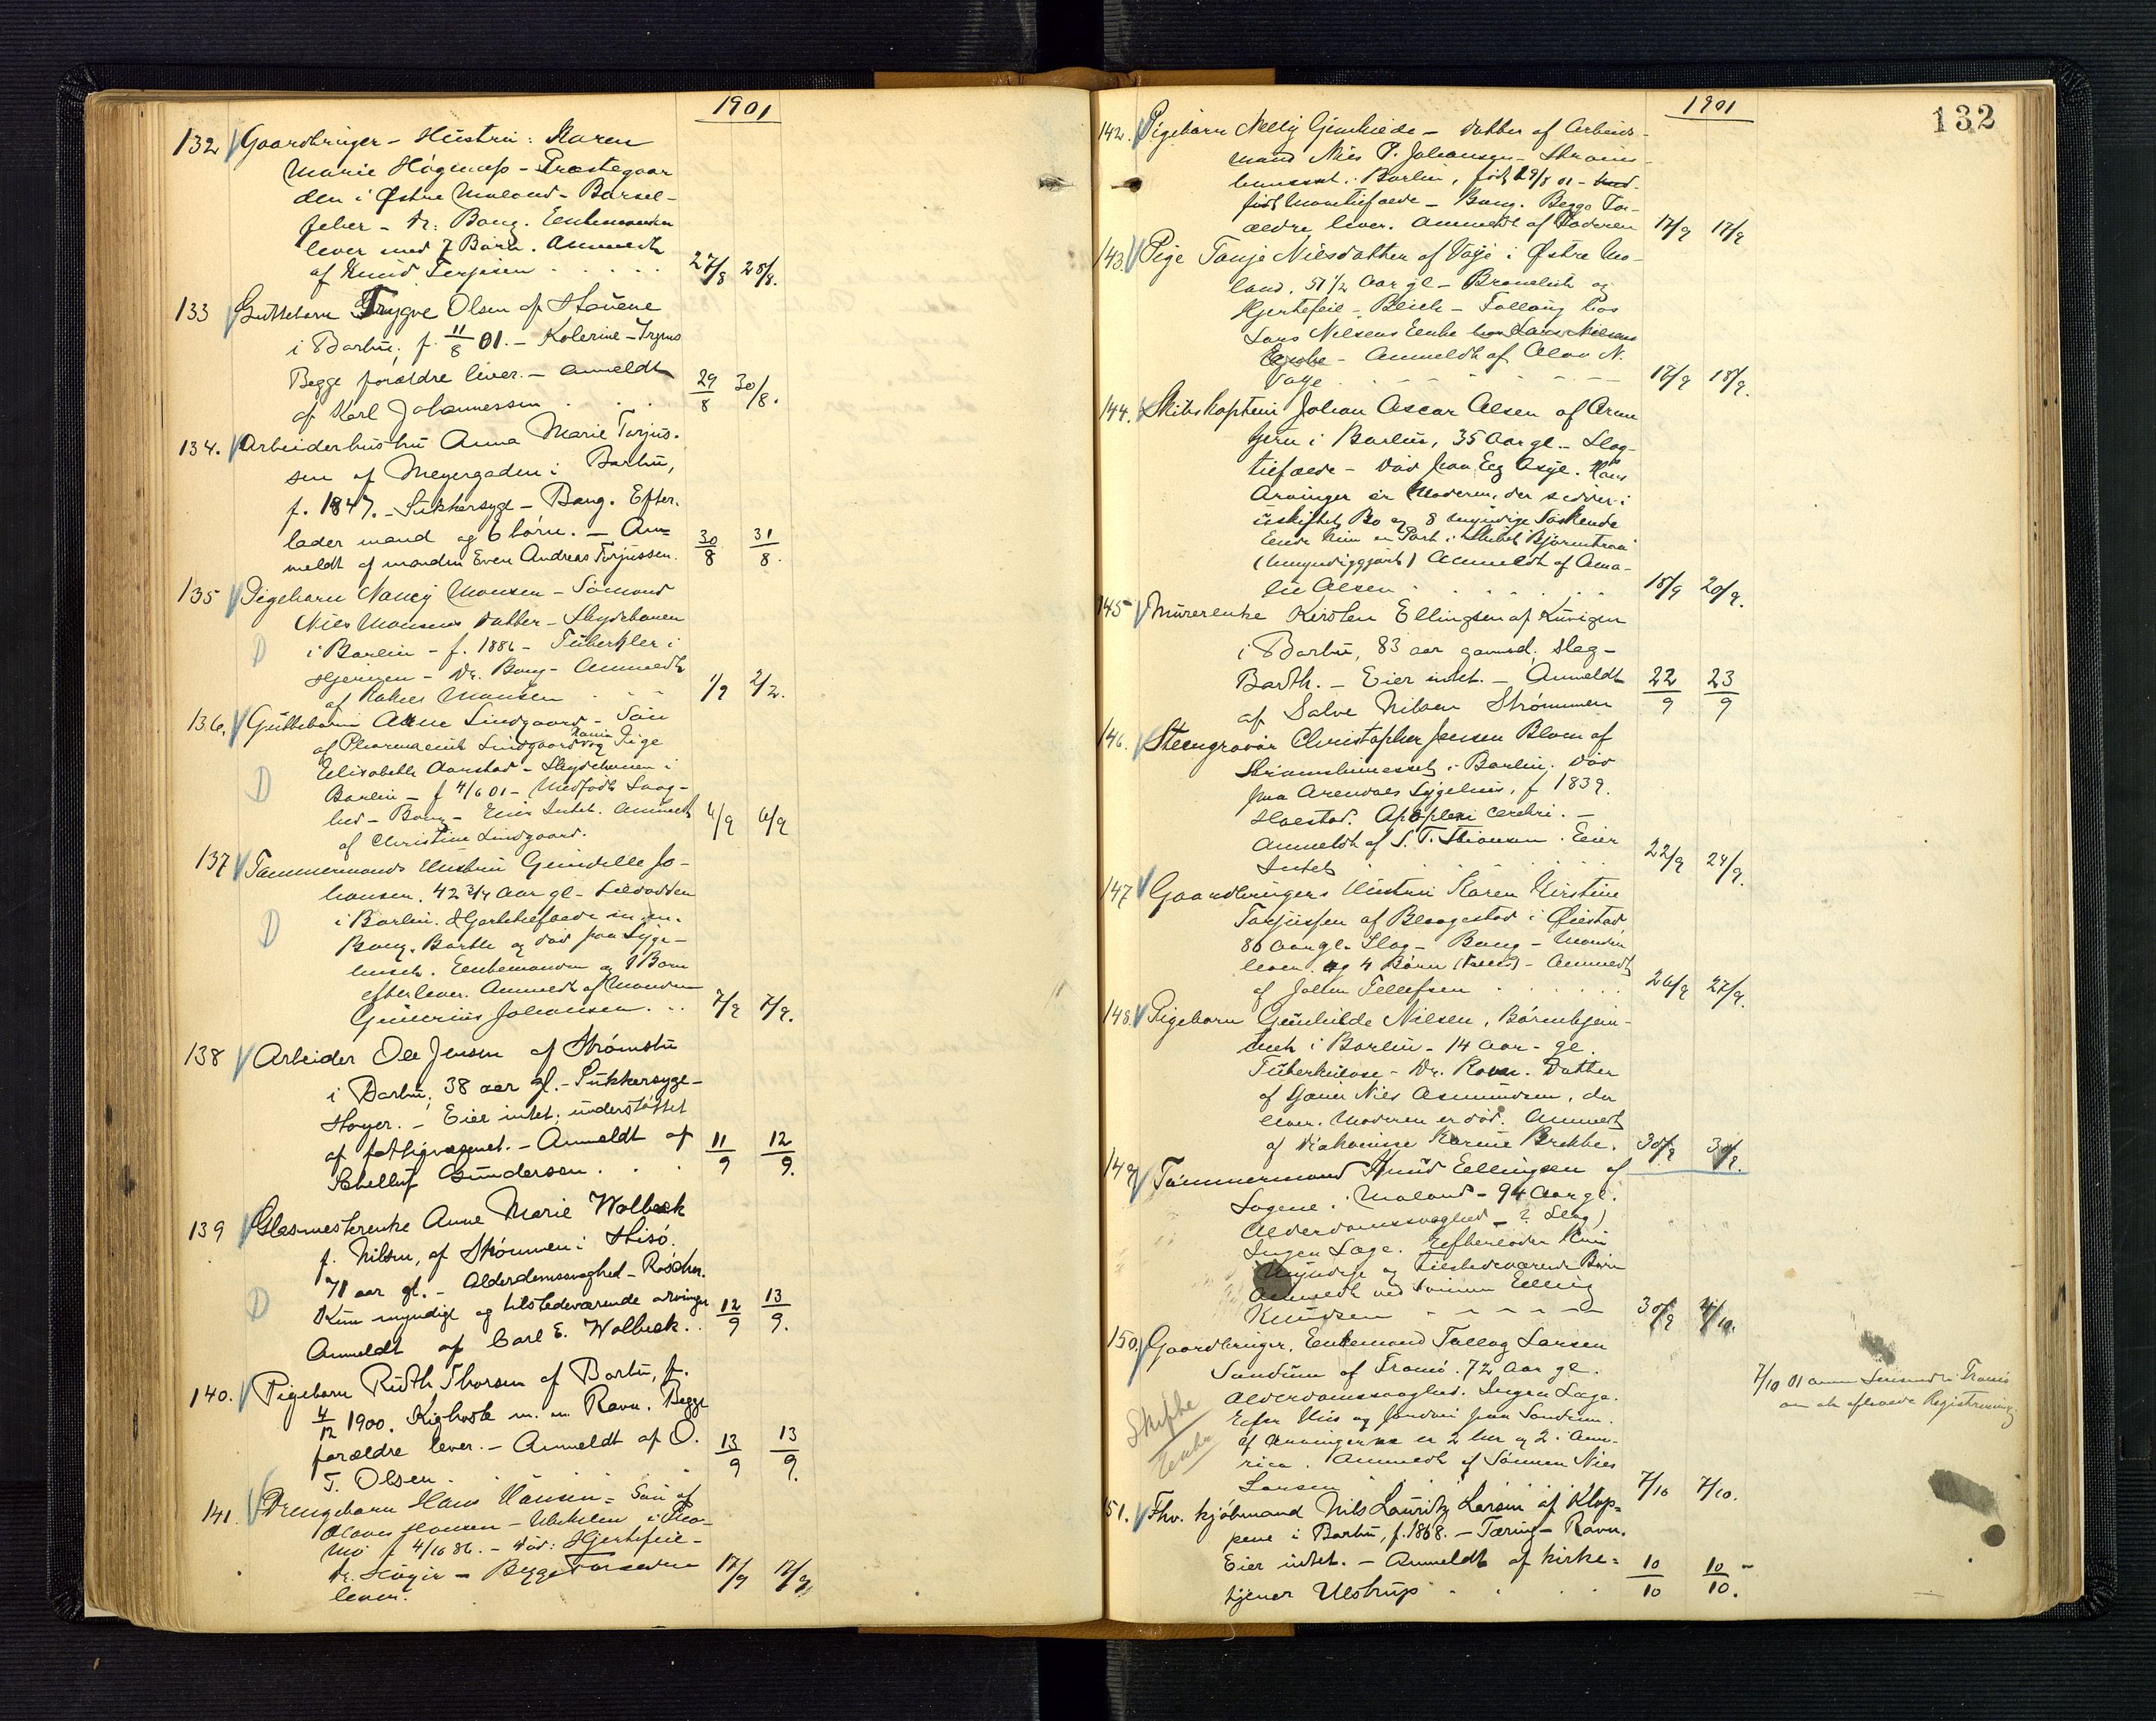 1901
132 Gaardbruger - Hustru: Karen
Marie Høgnes - Præstegaar
den i Østre Moland - Barsel-
feber - Dr: Bang. Enkemanden
lever med 7 Børn. Anmeldt
af Knud Terjesen . . . . . 27/8 28/8.
133 Guttebarn Trygve Olsen af Støüene
i Barbu, f. 11/8 01. - Kolerine - Tryms
Begge forældre lever. - Anmeldt
af Karl Johannessen . . . 29/8 30/8.
134. Arbeiderhustru Anna Marie Torjus-
sen af Meyergaden i Barbu,
f. 1847. - Sukkersyge - Bang. Efter-
lader mand og 6 børn. - An-
meldt af manden Even Andreas Torjussen. 30/8 31/8.
135 Pigebarn Nancy Monsen - Sømand
Niels Monsens Datter - Skydebanen
D i Barbu - f. 1886 - Tüberkler i
Hjernen - Dr. Bang - Anmeldt
af Monsen . . . 1/9 2/9.
136. Guttebarn Arne Lindgaard - Søn
af Pharmaceut Lindgaard og Pige
Elisabeth Aarstad - Skydebanen i
D Barbu - f 4/6 01 - Medfødt Svag-
hed - Bang - Eier Intet. Anmeldt 6/9 6/9
af Christine Lindgaard.
137 Tømmermands Hustru Gunelle Jo-
hansen. 42 3/4 Aar gl -
i Barbu. Hjerteslag
D Bang. Barth og død paa Syge-
huset. Enkemanden og Børn
efterlever. Anmeldt af Manden
Johansen . . 7/9 7/9.
138 Arbeider Ole Jensen af Strømsbu
i Barbu, 38 aar gl. - Sukkersyge -
Høyer. - Eier intet, understøttet
af fattigvæsenet. - Anmeldt af 11/9 12/9.
Gundersen . .
139 Glasmesterenke Anne Marie Wolbæk
f. Nilsen, af Strømmen i Hisø.
71 aar gl. - Alderdomssvaghed - Röscher.
D Kun myndige og tilstedeværende arvinger 12/9 13/9.
Anmeldt af Carl E. Wolbæk. .
140. Pigebarn Ruth Thorsen af Barbu, f.
4/12 1900. Kighoste m. m. Ravn. Begge
forældre lever. - Anmeldt af O. 13/9 13/9.
T. Olsen .
141. Drengebarn Hans Hansen - Søn af
Hansen - i Tro-
mø f 4/10 86. - Død: Hjertefeil -
Dr. Høyer - Begge Forældre 17/9 17/9
lever.
1901
132
142. Pigebarn Nelly Gunhilde - Datter af Arbeids-
mand Niels P. Johansen - Strøms-
huuset i Barbu, født 29/8 01 - Med-
født Hjertefeil - Bang. Begge For-
ældre lever. Anmeldt af Faderen 17/9 17/9
143. Pige Tanje Nielsdatter af Vaje i Østre Mo-
land. 51 1/2 Aar gl - Bronchit og
Hjertefeil - Bleich - Fattig hos
Lars Nielsens Enke hos Lars Nielsens
Enke - Anmeldt af Olav N.
Vaje . . . . 17/9 18/9.
144. Skibskaptein Johan Oscar Olsen af
i Barbu, 35 Aar gl - Slag-
tilfælde - Død paa Eeg Asyl. Hans
Arvinger er Moderen, der sidder i
uskiftet Bo og 8 myndige Søskende
Eiede kun en Part i Skibet Bjørntraa
(Umyndiggjort) Anmeldt af Ama-
lie Olsen . . . . 18/9 20/9.
145 Murerenke Kirsten Ellingsen af Kuvigen
i Barbu, 83 aar gammel. Slag -
Barth. - Eier intet. - Anmeldt 22/9 23/9
af Salve Nilsen Strømmen
146. Steengravør Christopher Jensen Blom af
Strømshuusset i Barbu. Død
paa Arendals Sygehus, f 1839.
Hoestad. Apoplexi cerebri. -
Anmeldt af S. T. Thomsen . Eier
Intet . . . 22/9 24/9.
147 Gaardbrugers Hustru Karen Kirstine
Torjussen af Bloagestad i Øiestad
86 Aar gl - Slag - Bang - Manden
lever og 4 Børn - Anmeldt
af Tellefsen . . . . . 26/9 27/9.
148. Pigebarn Gunhilde Nielsen, Børnehjem-
met i Barbu - 14 Aar - gl.
Tüberkulose - Dr. Ravn. Datter
af Niels Asmundsen, der
lever. Moderen er død. Anmeldt
af Diakonisse Karine Brekke. 30/9 30/9.
149 Tømmermand Knud Ellingsen af
Sagene i Moland - 94 Aar gl.
Alderdomssvaghed - ? Slag)
Ingen Læge. Efterlader kun
Myndige og tilstedeværende Børn
Anmeldt ved Sønnen Elling
Knudsen - - - - - 30/9 4/10.
150. Gaardbruger, Enkemand Tallag Larsen
Sandum af Tromø. 72 Aar gl.
Alderdomssvaghed. Ingen Læge.
Eier Hus og Jordvei paa Sandum.
Af Arvingerne er 2 her og 2 i Ame-
rica. Anmeldt af Sønnen Niels
Larsen . . . . . 7/10 7/10.
Skifte
Enke
7/10 01 anm Lensmd i Tromø
om at afholde Registrering
151. Fhv. kjøbmand Nils Lauritz Larsen af Klop-
pene i Barbu, f. 1868. - Tæring - Ravn.
Eier intet. - Anmeldt af kirke-
tjener Ulstrup . . . 10/10 10/10.